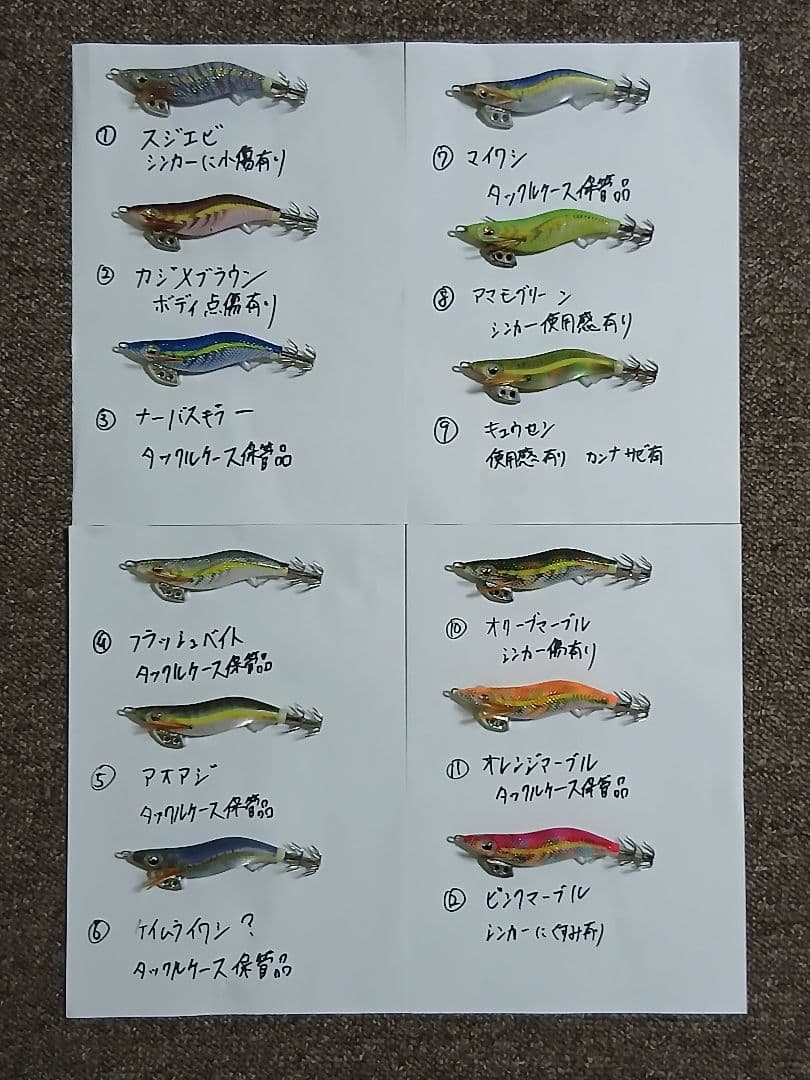 ① スジエビ
シンカーに小傷有り
② カジメブラウン
ボディ点傷有り
③ ナーバスキラー
タックルケース保管品
④ フラッシュベイト
タックルケース保管品
⑤ アオアジ
タックルケース保管品
⑥ ケイムライワシ?
タックルケース保管品
⑦ マイワシ
タックルケース保管品
⑧ アマモグリーン
シンカー使用感有り
⑨ キュウセン
使用感有り カンナサビ有
⑩ オリーブマーブル
シンカー傷有り
⑪ オレンジマーブル
タックルケース保管品
⑫ ピンクマーブル
シンカーにくすみ有り